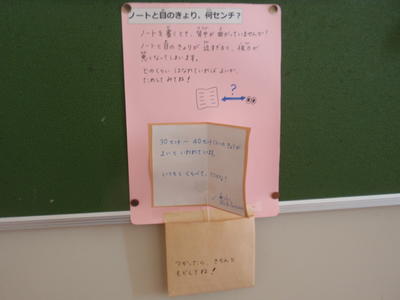 ノートと目のきょり，何センチ？
ノートを書くとき、背中が曲がっていませんか？
ノートと目のきょりが近すぎると、視力が
悪くなってしまいます。
どのくらい はなれていればよいか、
ためしてみてね！
?
30センチ〜40センチくらいのきょりが
よいといわれています。
いつもとくらべて、どうかな？
つかったら、きちんと
もどしてね！